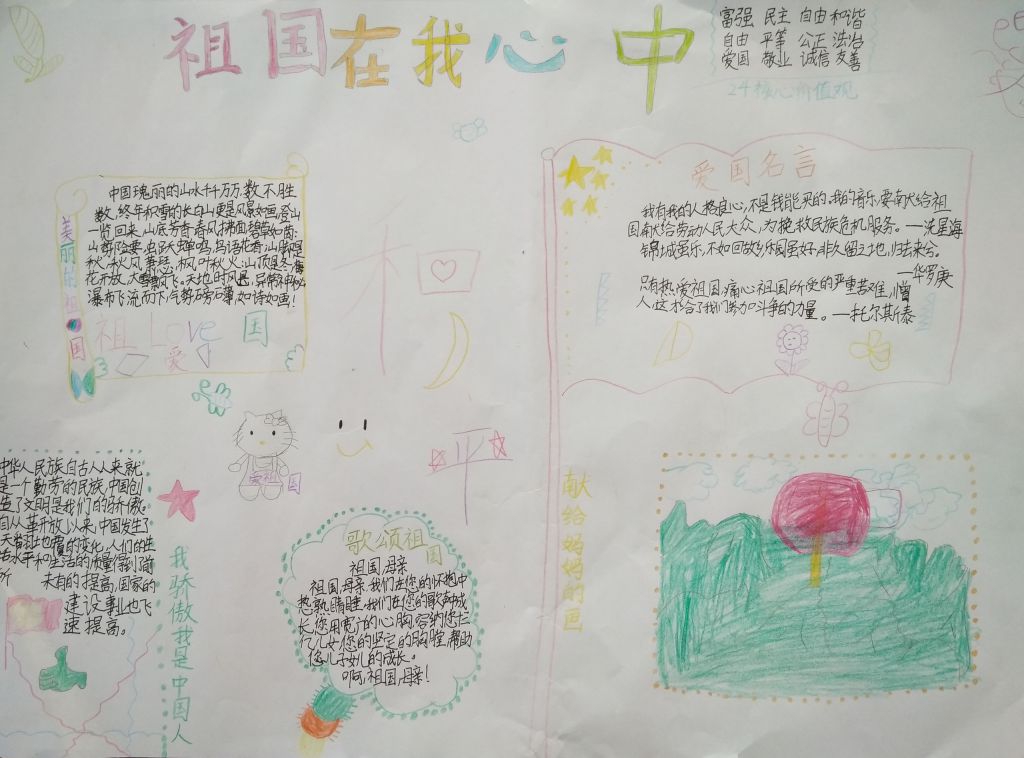 祖国在我心中
富强 民主 自由和谐
自由 平等 公正 法治
爱国 敬业 诚信 友善
24核心价值观
美丽的祖国
中国瑰丽的山水千千万万,数不胜
数,终年积雪的长白山更是风景如画,登山
一览回来,山底芳青,春风拂面,碧草如茵;
花开放,大雪飘飞。天地时风
瀑布飞流而下,气势磅礴,如诗如画!
祖 Love 国
爱
和
平
爱国名言
我有我的人格良心,不是钱能买的。我的音乐,要献给祖
国,献给劳动人民大众,为挽救民族危机服务。—冼星海
锦城虽乐,不如回故乡;乐园虽好,非久留之地,归去来兮。
—华罗庚
只有热爱祖国,痛心祖国所受的严重苦难,憎
给了我们参加斗争的力量。—托尔斯泰
爱祖国
中华人民族自古人人来就
是一个勤劳的民族,中国创
造了文明是我们的骄傲。
自从革开放以来,中国发生了
天翻地覆的变化,人们的生
活水平和生活的质量得到前
所 未有的提高,国家的
建设事业也飞
速提高。
我骄傲我是中国人
歌颂祖国
祖国,母亲
祖国,母亲,我们在您的怀抱中
熟睡,我们在您的歌声中成
长,您用宽广的心胸,容纳您
亿儿女,您的坚定的胸膛,帮助
您儿子女儿的成长。
啊,祖国,母亲!
献给妈妈的画